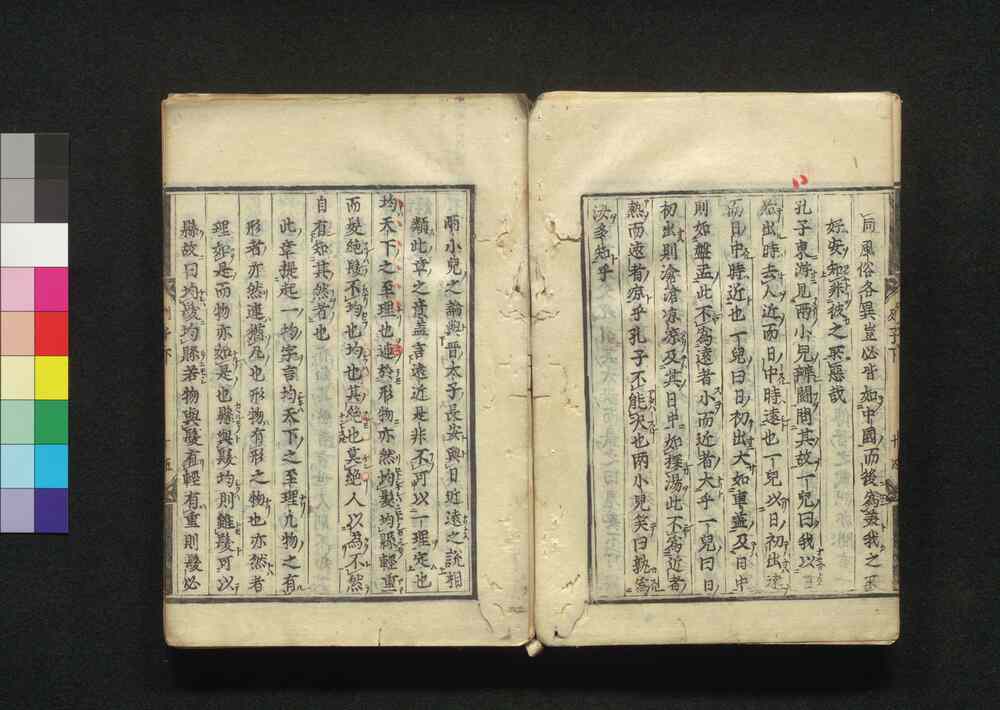 同風俗各異豈必皆如中國而後為美我之
好安知非彼之所惡哉
孔子東游見兩小兒辯鬪問其故一兒曰我以日
始出時去人近而日中時遠也一兒以日初出遠
而日中時近也一兒曰日初出大如車蓋及日中
則如盤盂此不為遠者小而近者大乎一兒曰日
初出則滄滄涼涼及其日中如探湯此不為近者
熱而遠者涼乎孔子不能決也兩小兒笑曰孰為
汝多知乎
兩小兒之論與晉太子長安與日近遠之說相
類此章之意蓋言遠近是非不可以一理定也
均天下之至理也連於形物亦然均髮均縣輕重
而髮絕髮不均也均也其絕也莫絕人以為不然
自有知其然者也
此章提起一均字言均天下之至理凡物之有
形者亦然連猶凡也形物有形之物也亦然者
理如是而物亦如是也縣與髮均則雖髮可以
縣故曰均髮均縣若物與髮有輕有重則髮必